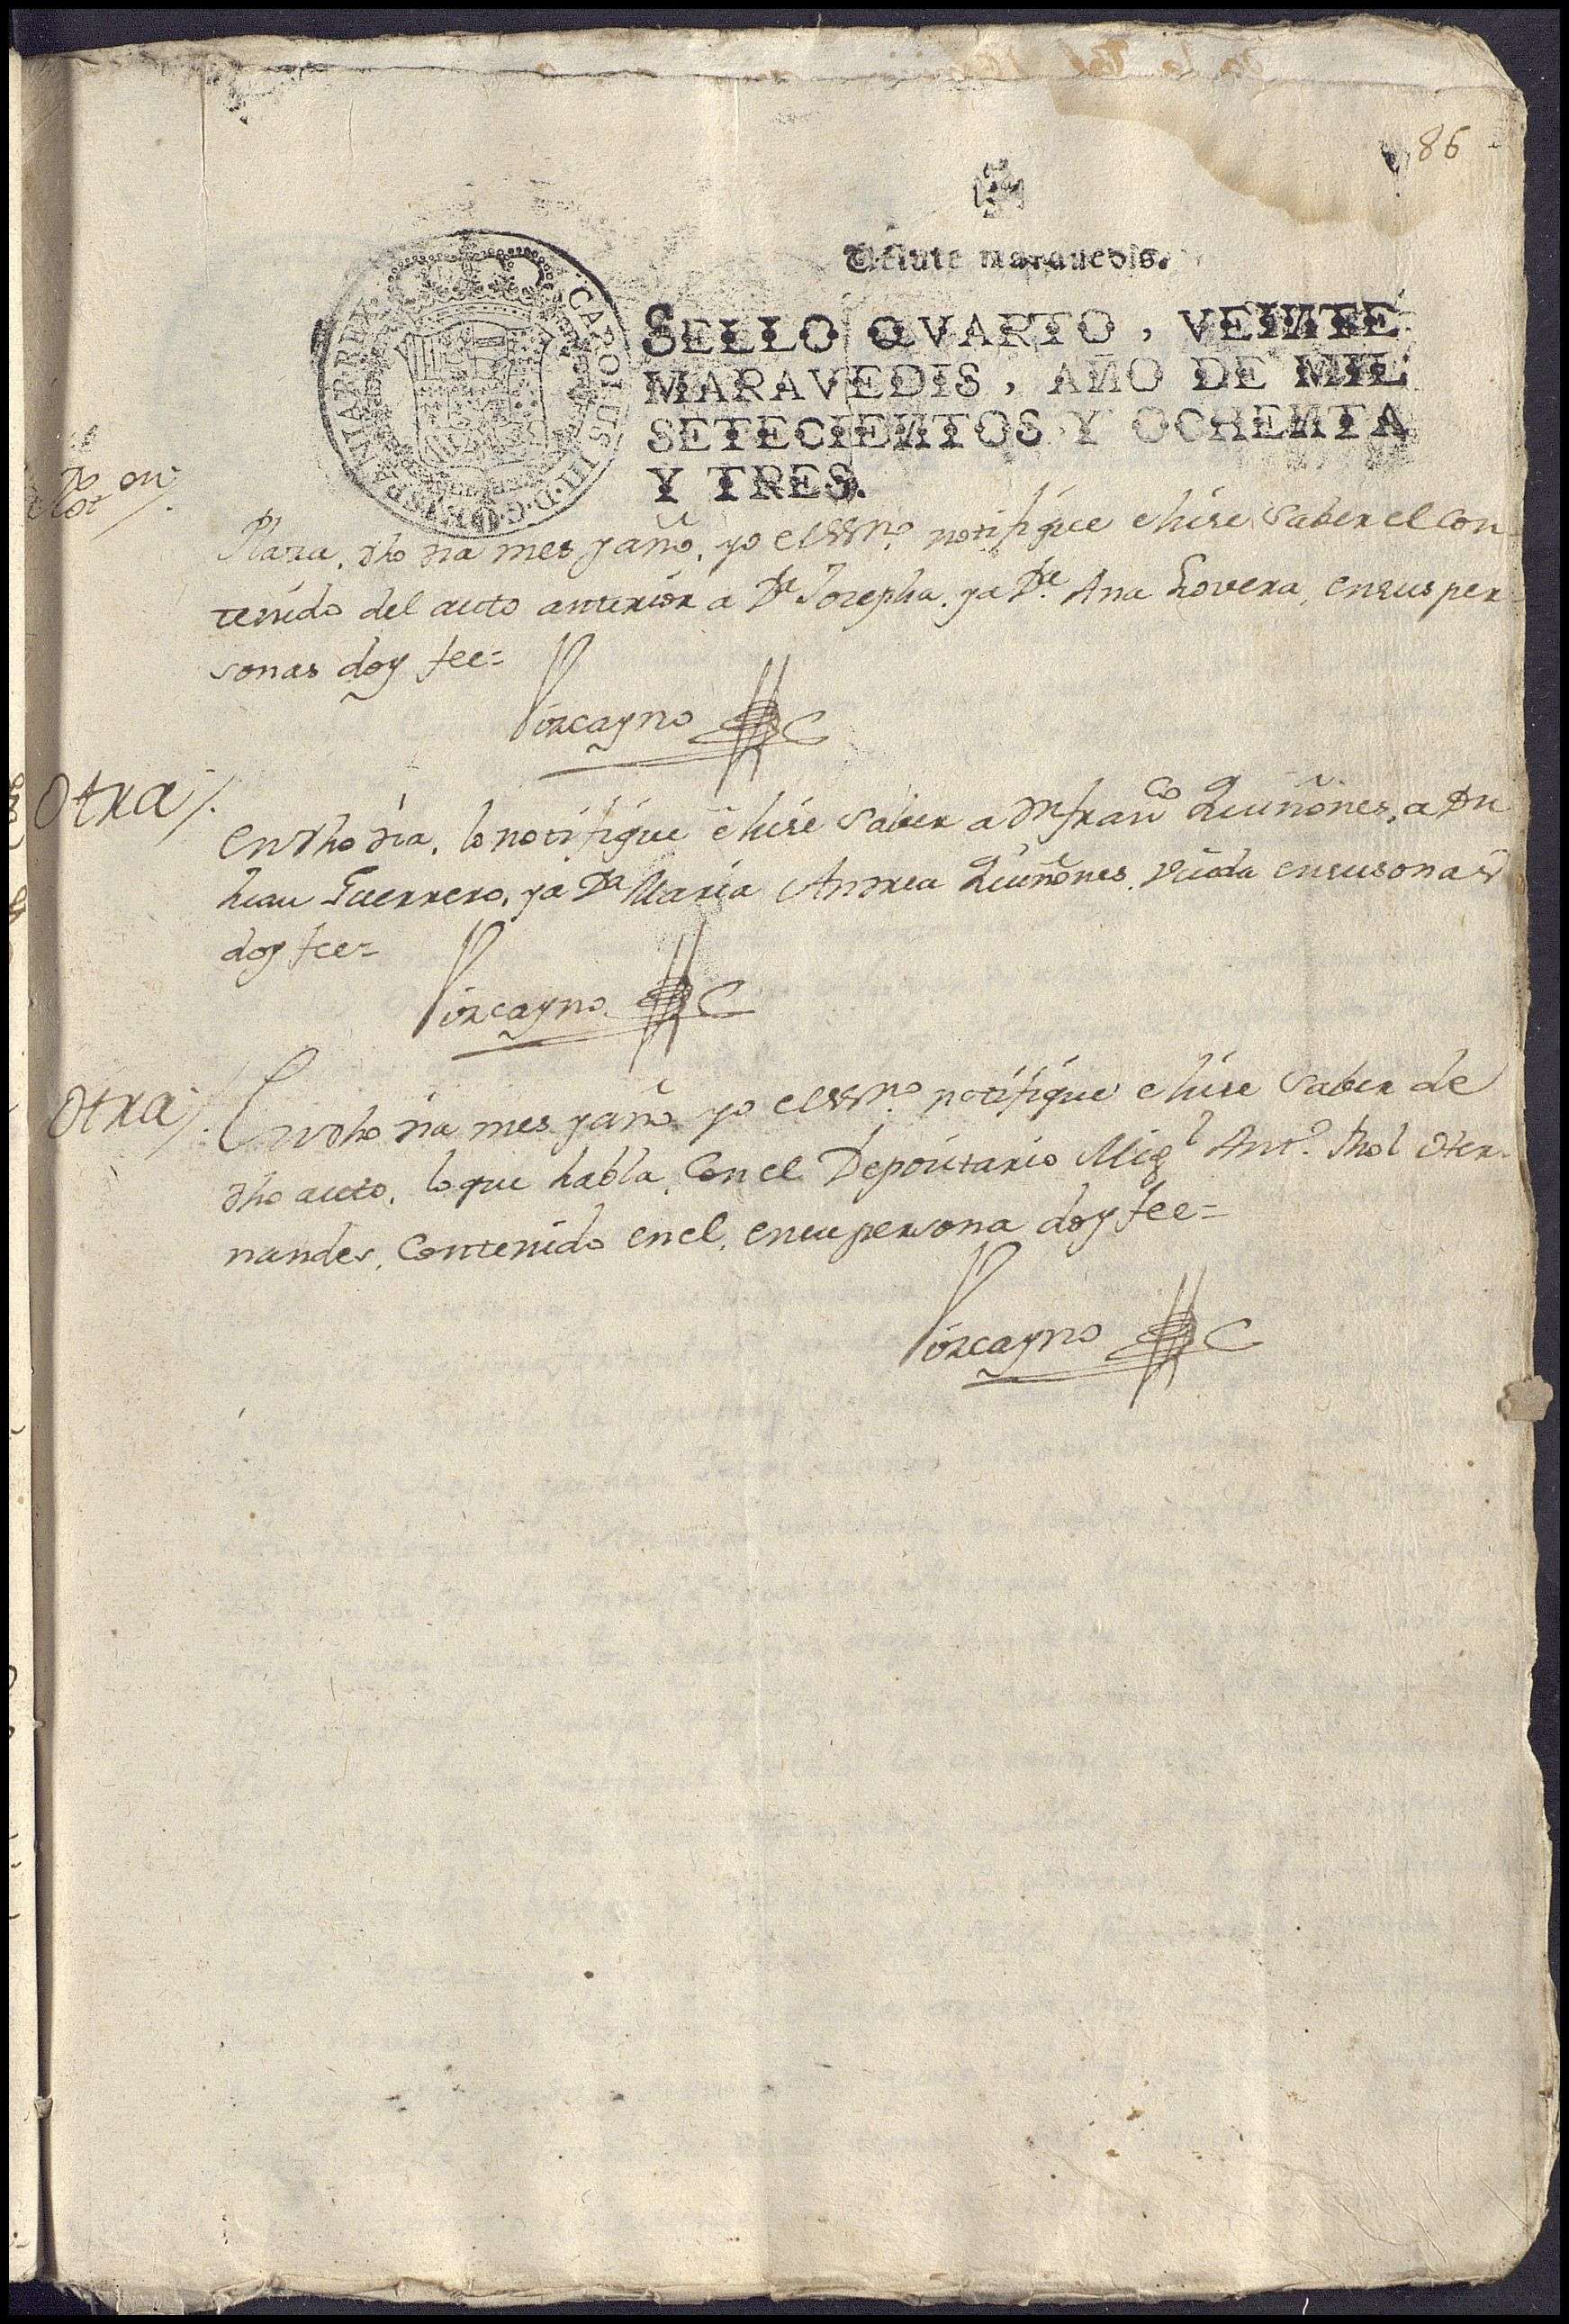 86
Veinte maravedis.
SELLO QVARTO, VEINTE
MARAVEDIS, AÑO DE MIL
SETECIENTOS Y OCHENTA
Y TRES.
CAROLUS III D G HISPANIAR REX
Not on
dho dia mes y año, yo el essno. notifique e hise saber el con
tenido del auto anterior a Da. Josepha, y a Da. Ana Lovera, en sus per
sonas doy fee=
Viscayno
Otra
En dho dia, lo notifique e hise saber a Dn Franco Quiñones, a Dn
Juan Guerrero, y a Da Maria Andrea Quiñones, viuda en susonas
doy fee=
Viscayno
Otra
En dho dia mes y año yo el essno. notifique e hise saber de
dho auto, lo que habla, con el Depositario Migl Anto. Her
nandes, contenido en el, en su persona doy fee=
Viscayno